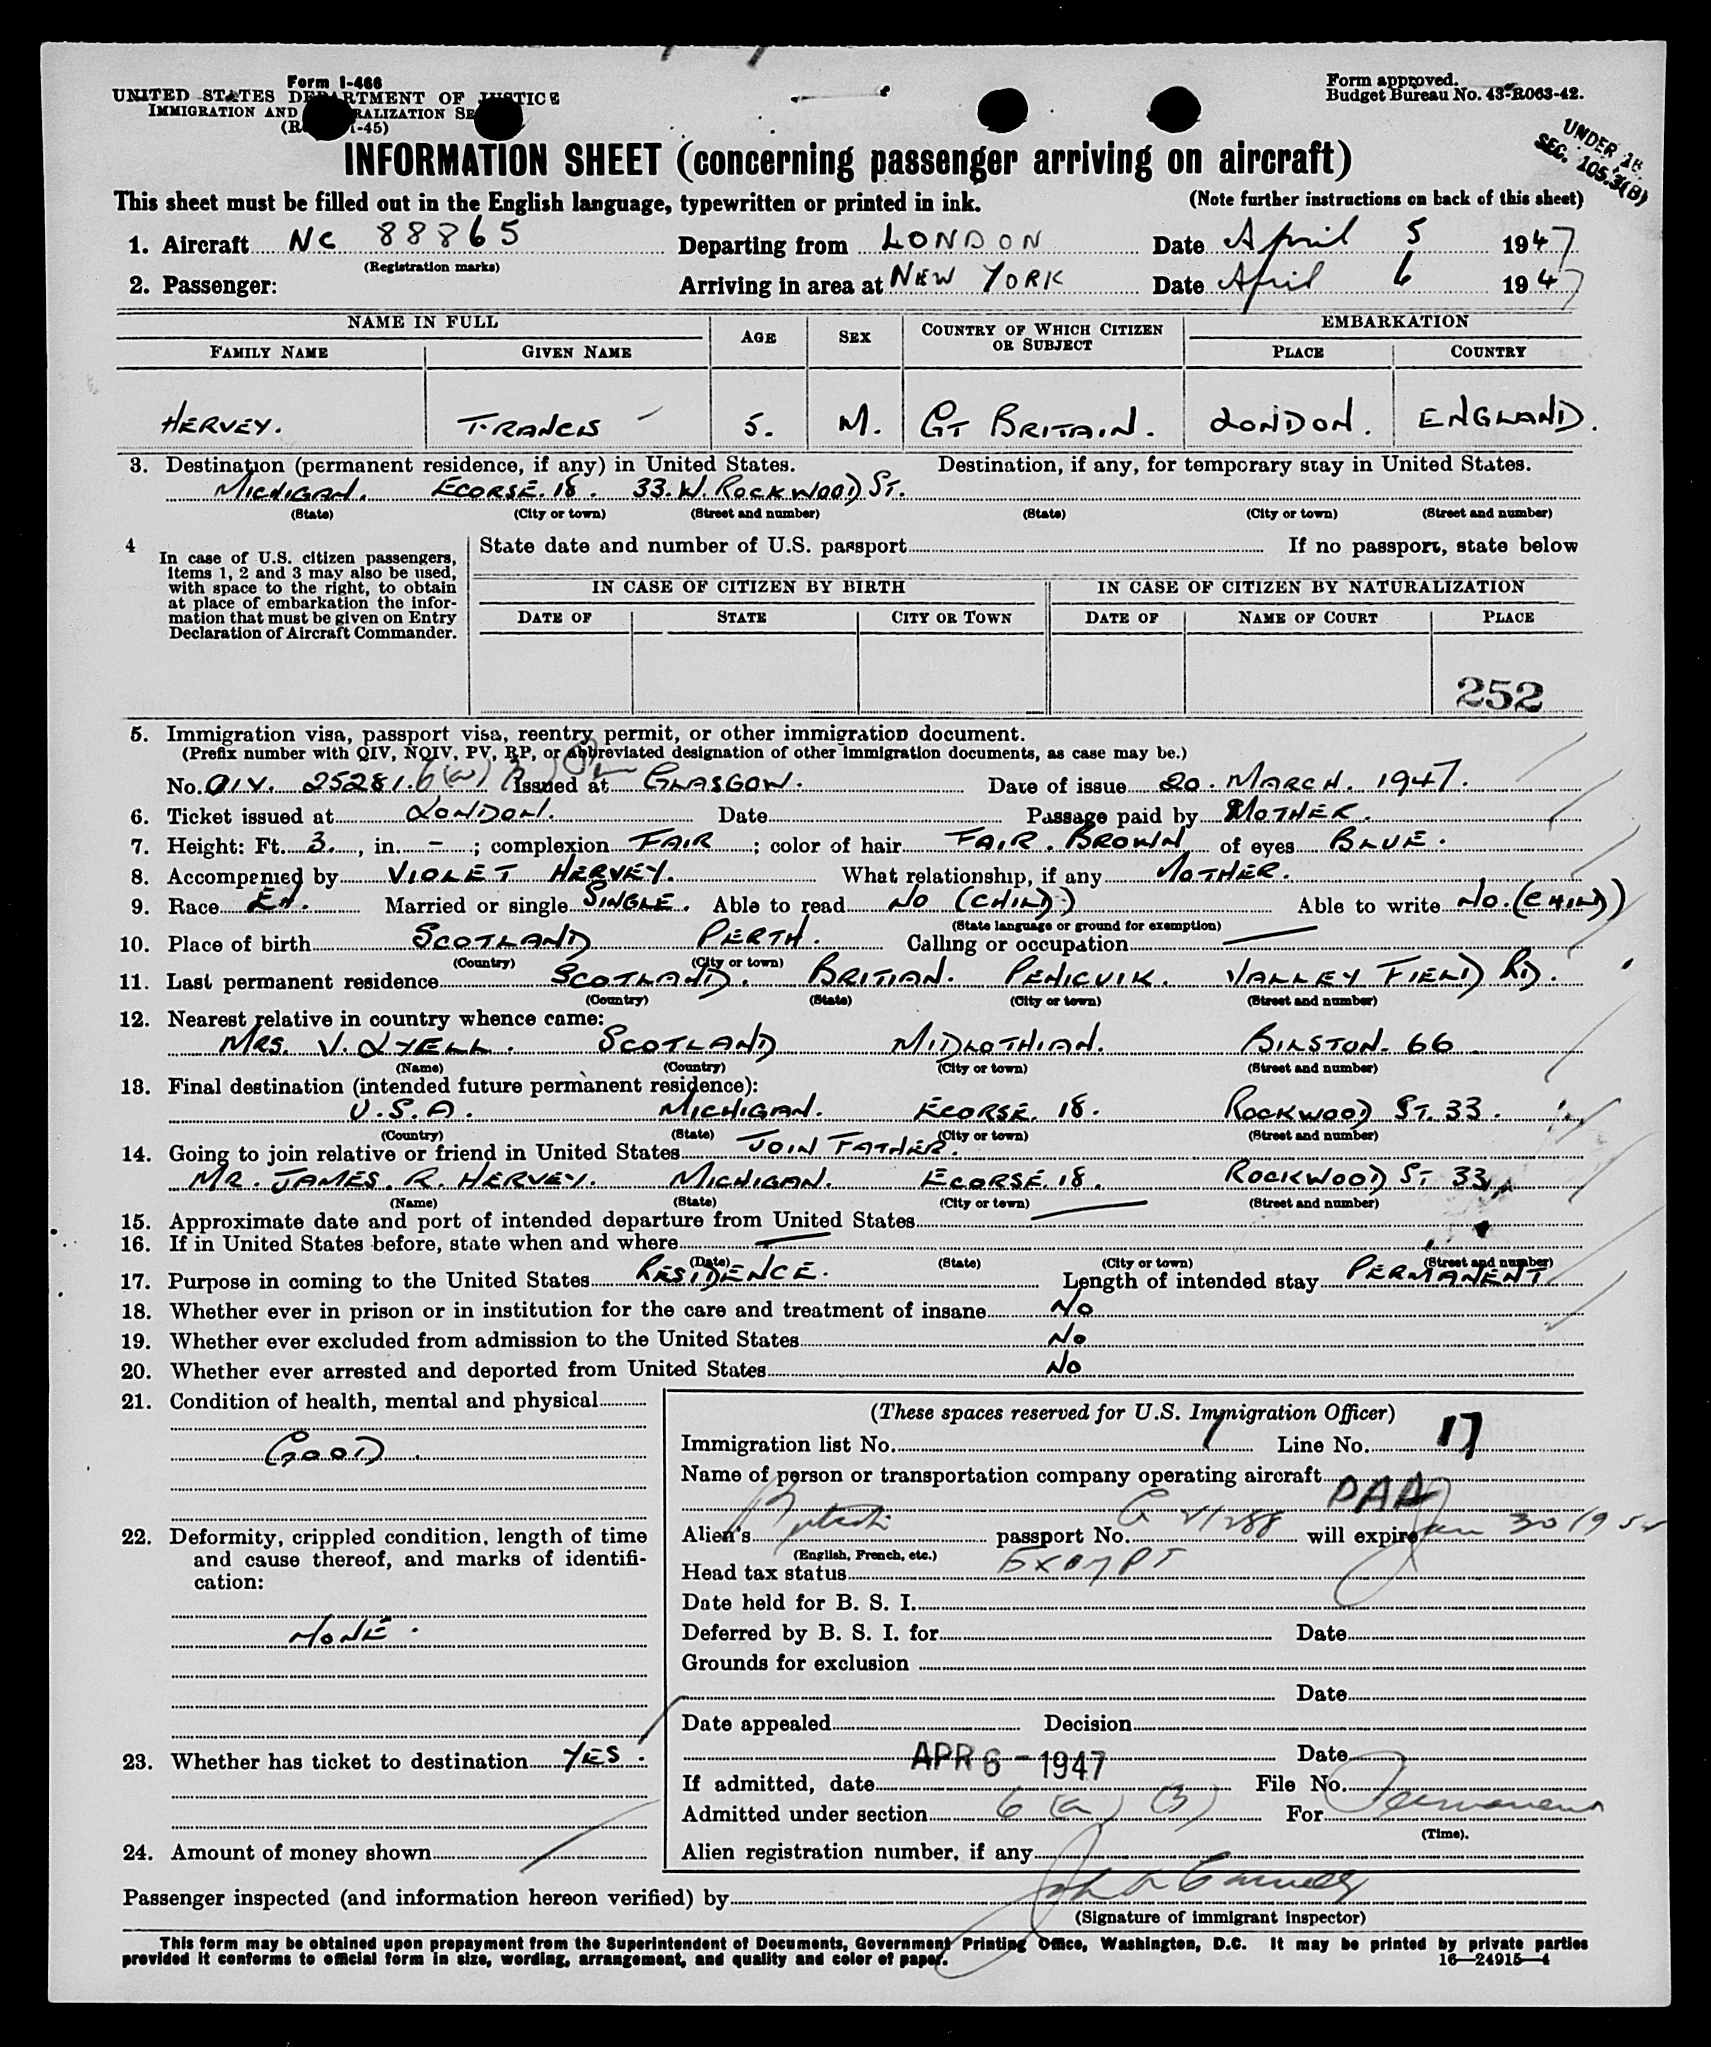 Form I-466
UNITED STATES DEPARTMENT OF JUSTICE
IMMIGRATION AND NATURALIZATION SE
1-45)
Form approved.
Budget Bureau No. 43-R063-42.
UNDER 16.
SEC. 105.3(B)
INFORMATION SHEET (concerning passenger arriving on aircraft)
This sheet must be filled out in the English language, typewritten or printed in ink. (Note further instructions on back of this sheet)
1. Aircraft NC 88865 Departing from LONDON Date April 5 1947
(Registration marks)
2. Passenger: Arriving in area at NEW YORK Date April 6 1947
NAME IN FULL AGE SEX COUNTRY OF WHICH CITIZEN OR SUBJECT EMBARKATION
FAMILY NAME GIVEN NAME PLACE COUNTRY
HERVEY. FRANCIS 5. M. GT BRITAIN. LONDON. ENGLAND.
3. Destination (permanent residence, if any) in United States. Destination, if any, for temporary stay in United States.
MICHIGAN. ECORSE. 18. 33. W. ROCKWOOD ST.
(State) (City or town) (Street and number) (State) (City or town) (Street and number)
4 In case of U.S. citizen passengers, items 1, 2 and 3 may also be used, with space to the right, to obtain at place of embarkation the information that must be given on Entry Declaration of Aircraft Commander.
State date and number of U.S. passport If no passport, state below
IN CASE OF CITIZEN BY BIRTH IN CASE OF CITIZEN BY NATURALIZATION
DATE OF STATE CITY OR TOWN DATE OF NAME OF COURT PLACE
252
5. Immigration visa, passport visa, reentry permit, or other immigration document.
(Prefix number with QIV, NQIV, PV, RP, or abbreviated designation of other immigration documents, as case may be.)
No. QIV. 25281. 6(a) 3 Issued at GLASGOW. Date of issue 20. MARCH. 1947.
6. Ticket issued at LONDON. Date Passage paid by MOTHER.
7. Height: Ft. 3. , in. - ; complexion FAIR ; color of hair FAIR. BROWN of eyes BLUE.
8. Accompanied by VIOLET HERVEY. What relationship, if any MOTHER.
9. Race EN. Married or single SINGLE. Able to read NO (CHILD) Able to write NO. (CHILD)
(State language or ground for exemption)
10. Place of birth SCOTLAND PERTH. Calling or occupation
(Country) (City or town)
11. Last permanent residence SCOTLAND. BRITIAN. PENICUIK. VALLEY FIELD RD.
(Country) (State) (City or town) (Street and number)
12. Nearest relative in country whence came:
MRS. V. LYELL. SCOTLAND MIDLOTHIAN. BILSTON. 66
(Name) (Country) (City or town) (Street and number)
13. Final destination (intended future permanent residence):
U.S.A. MICHIGAN. ECORSE. 18. ROCKWOOD ST. 33.
(Country) (State) (City or town) (Street and number)
14. Going to join relative or friend in United States JOIN FATHER.
MR. JAMES. R. HERVEY. MICHIGAN. ECORSE. 18. ROCKWOOD ST 33
(Name) (State) (City or town) (Street and number)
15. Approximate date and port of intended departure from United States
16. If in United States before, state when and where
(Date) (State) (City or town) (Street and number)
17. Purpose in coming to the United States RESIDENCE. Length of intended stay PERMANENT
18. Whether ever in prison or in institution for the care and treatment of insane NO
19. Whether ever excluded from admission to the United States NO
20. Whether ever arrested and deported from United States NO
21. Condition of health, mental and physical
GOOD.
22. Deformity, crippled condition, length of time and cause thereof, and marks of identification:
NONE.
23. Whether has ticket to destination YES.
24. Amount of money shown
(These spaces reserved for U.S. Immigration Officer)
Immigration list No. 1 Line No. 17
Name of person or transportation company operating aircraft
PAA
Alien's British passport No. will expire Jan 30 195
(English, French, etc.)
Head tax status Exempt
Date held for B. S. I.
Deferred by B. S. I. for Date
Grounds for exclusion
Date
Date appealed Decision
Date
If admitted, date APR 6 - 1947 File No.
Admitted under section 6 (a) (3) For Permanent
(Time).
Alien registration number, if any
Passenger inspected (and information hereon verified) by
(Signature of immigrant inspector)
This form may be obtained upon prepayment from the Superintendent of Documents, Government Printing Office, Washington, D.C. It may be printed by private parties
provided it conforms to official form in size, wording, arrangement, and quality and color of paper. 16—24915-4